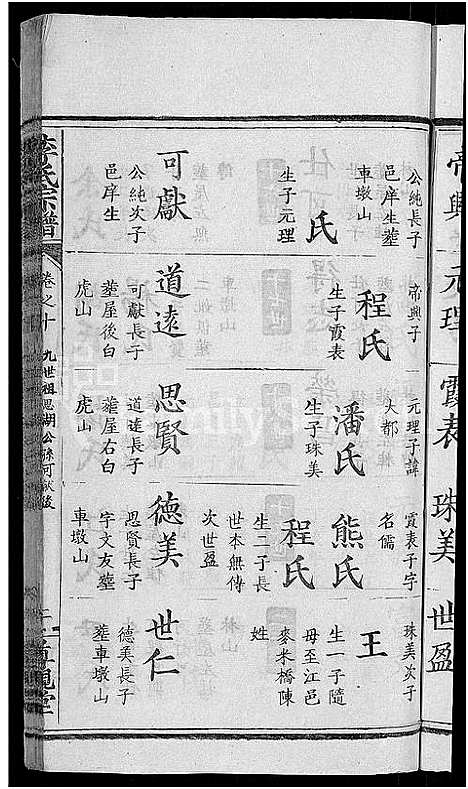 帝興
元理
霞表
珠美
世盈
公純長子
邑庠生塟
車墩山
氏
生子元理
可獻
公純次子
邑庠生
帝興子
程氏
生子霞表
道遠
可獻長子
塟屋後白
虎山
元理子諱
大都
潘氏
生子珠美
思賢
道遠長子
塟屋右白
虎山
霞表子字
名儒
熊氏
程氏
生二子長
世本無傳
次世盈
德美
思賢長子
字文友塟
車墩山
珠美次子
王
生一子隨
母至江邑
麥米橋陳
姓
世仁
德美長子
塟車墩山
李氏宗譜
卷之十
九世祖思湖公孫可獻後